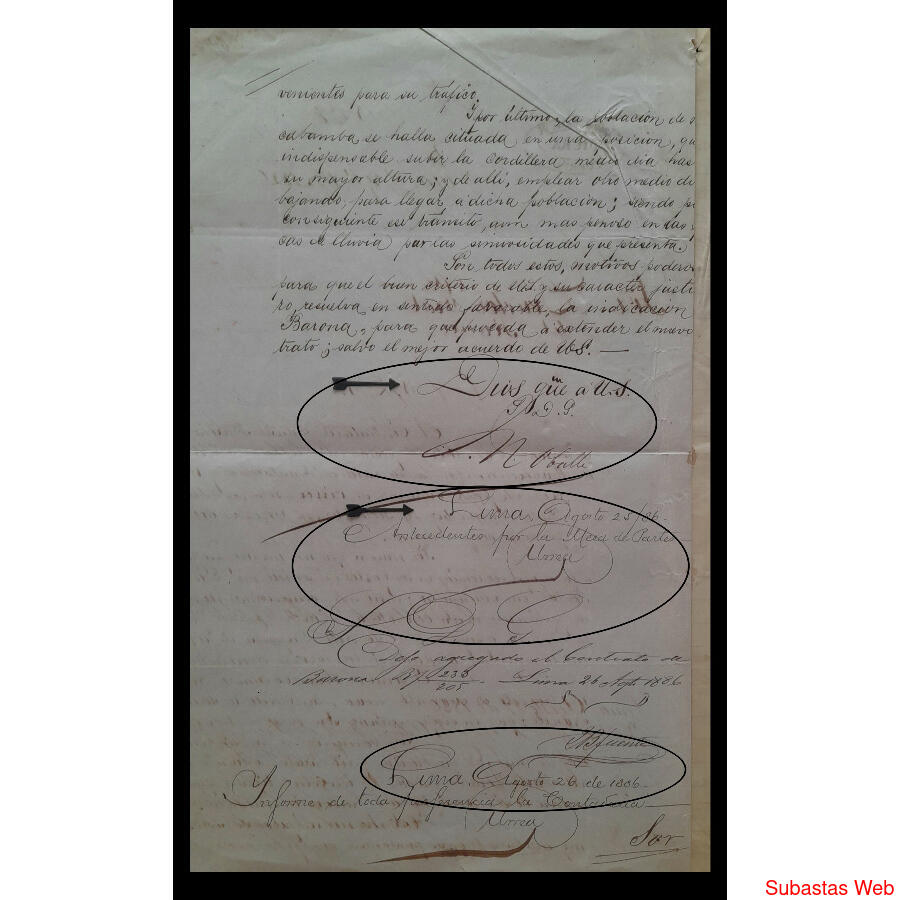 venientes para su tráfico.
Y por último, la población de
cabamba se halla situada en una posición, que
indispensable subir la cordillera medio dia has
su mayor altura; y de allí, emplear otro medio di
bajando, para llegar á dicha población; siendo p
consiguiente ese tránsito, aun mas penoso en las
cas de lluvia por las sinuosidades que presenta.
Son todos estos, motivos podero
para que el buen criterio de US. y su caracter justi
ro, resuelva en sentido favorable, la indicación
Barona, para que proceda á extender el nuevo
trato; salvo el mejor acuerdo de US. —
Dios gue á U.S.
S. D. G.
N. Ovalle
Lima, Agosto 25/86.
Antecedentes por la Mesa de Partes
Urrea
S. D. G.
Dejo agregado el Contrato de
Barona. 233
205 . Lima 26 Agto 1886
Lima, Agosto 26 de 1886.
Informe de toda preferencia la Contaduria
Urrea
Sor
Subastas Web